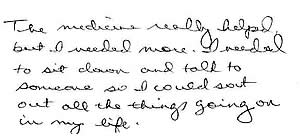 The medicine really helped,
but I needed more. I needed
to sit down and talk to
someone so I could sort
out all the things going on
in my life.